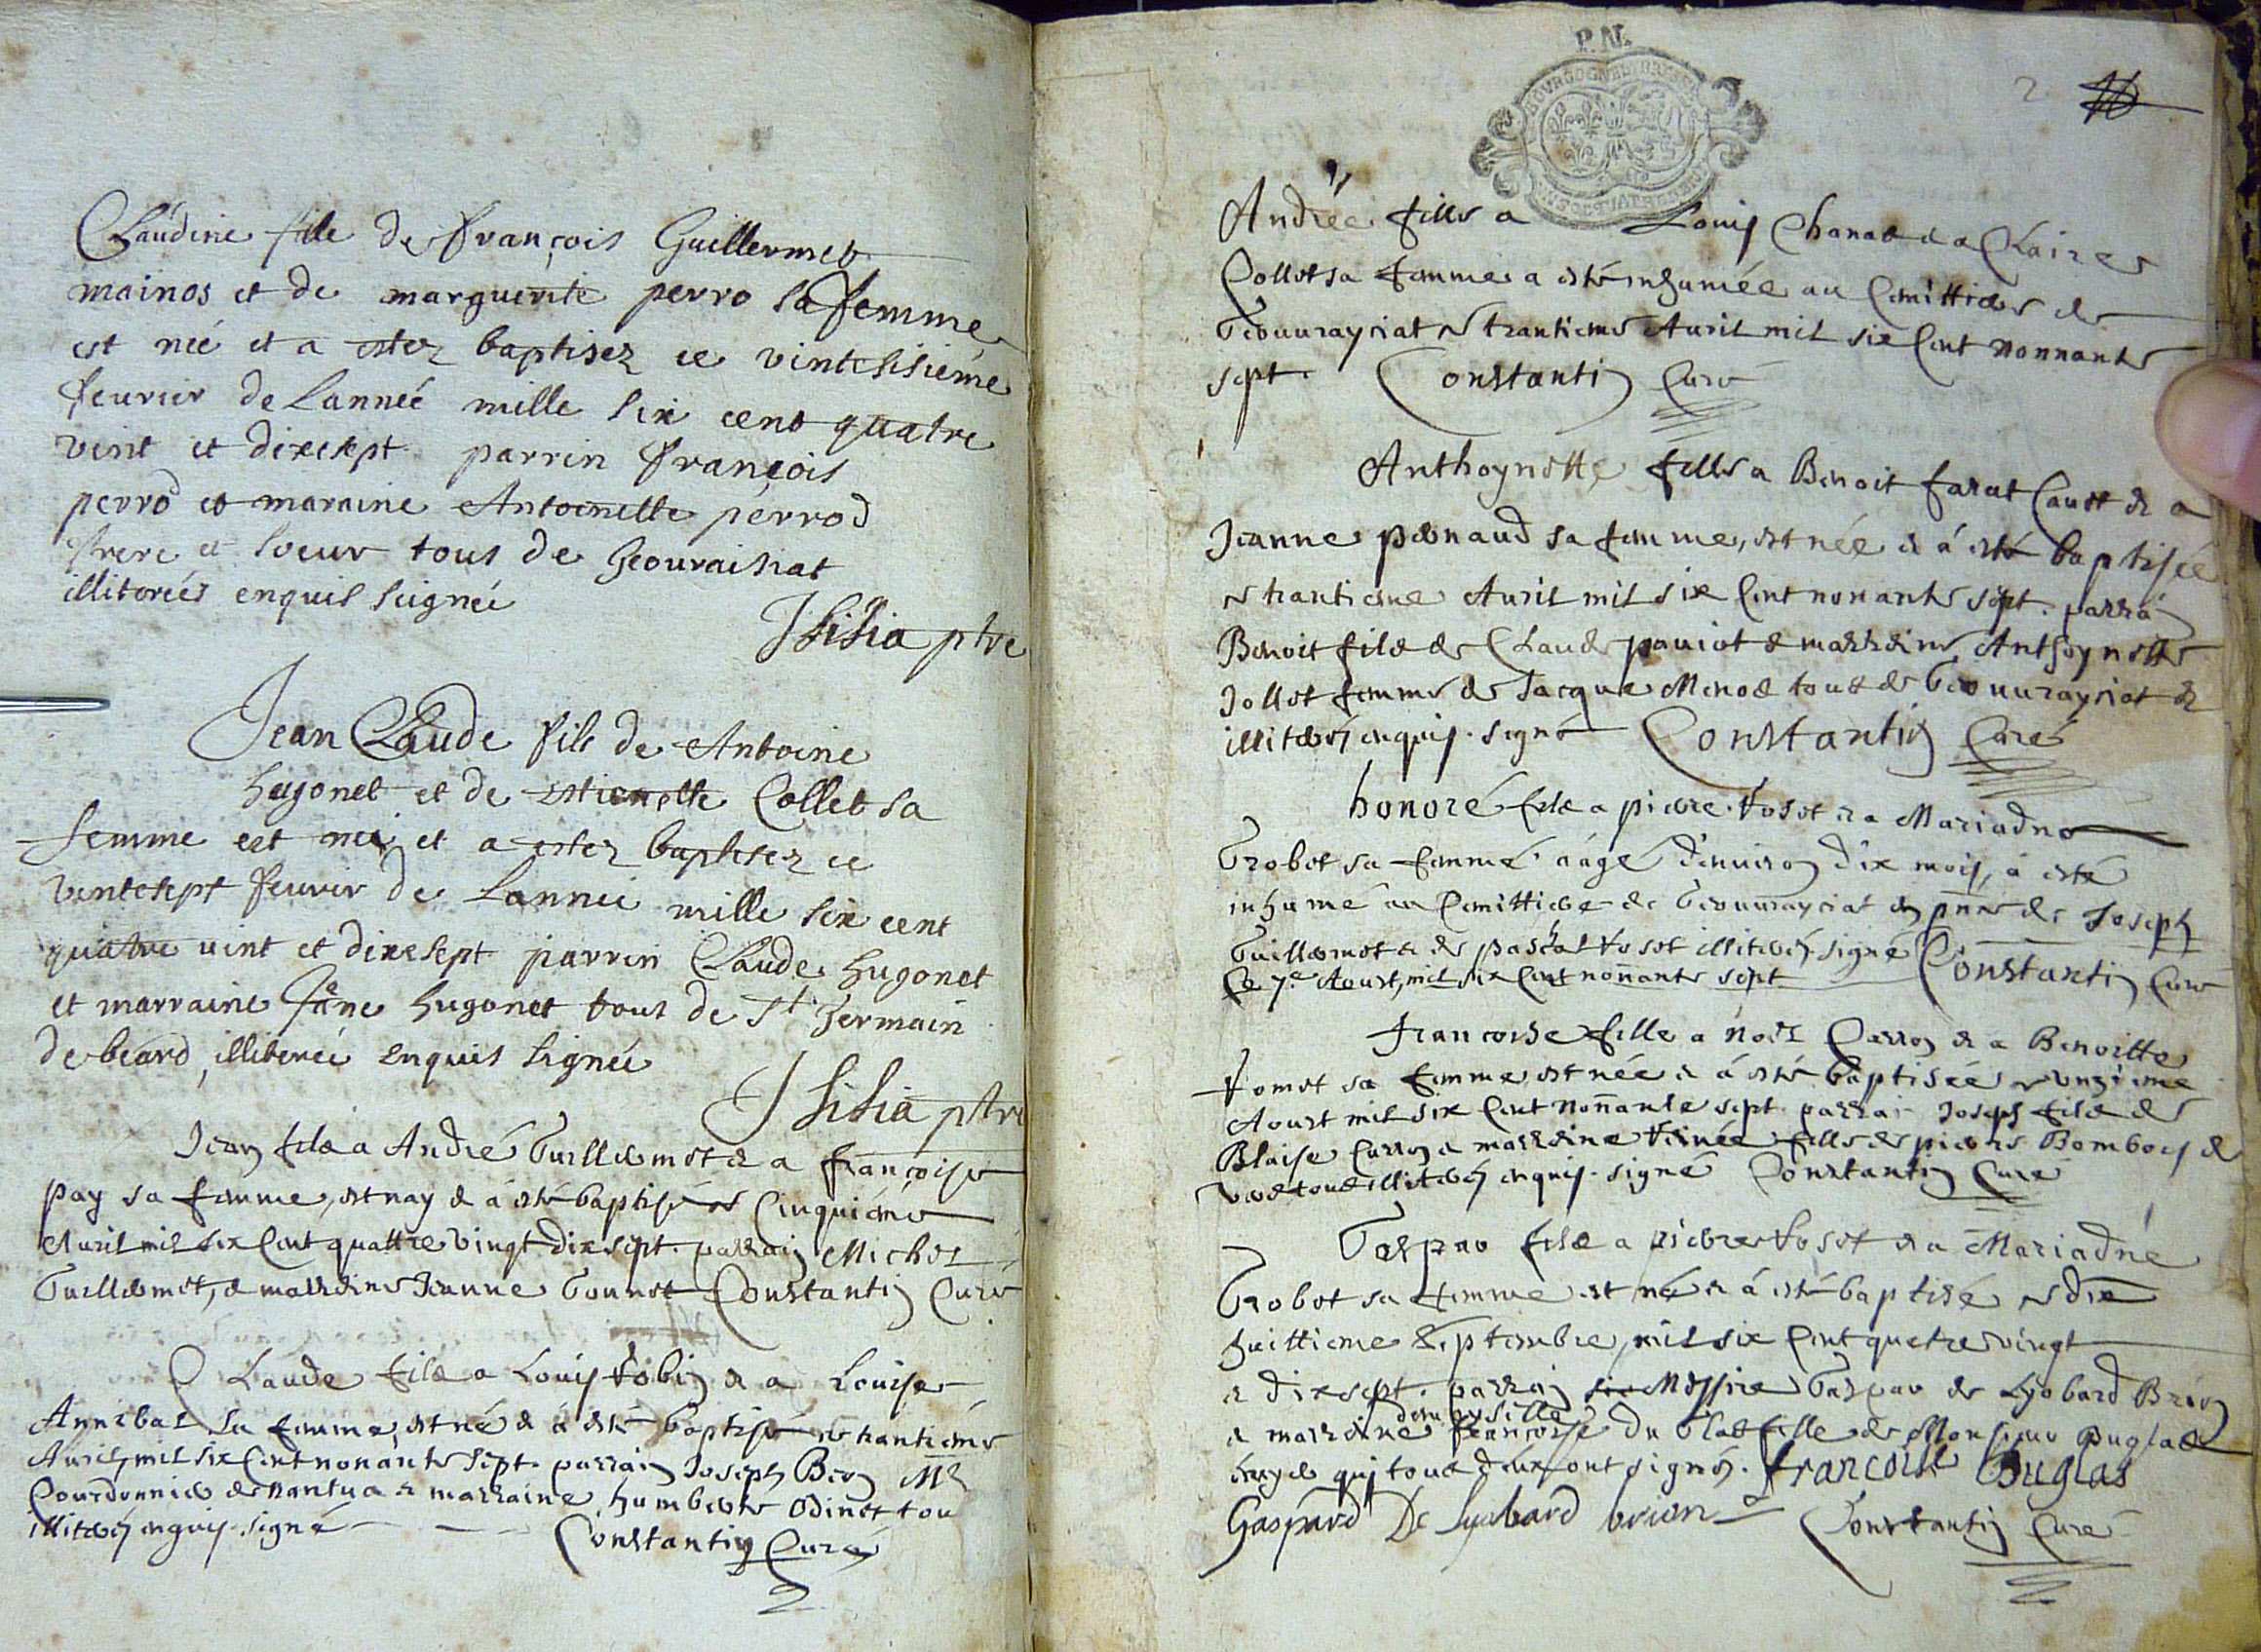 Claudine fille de françois Guillermet
mainos et de marguerite perro sa femme
est neé et a estez baptisez ce vintesisiéme
feurier de Lanneé mille six cent quatre
vint et dixesept parrin françois
perrod et maraine Antoinette perrod
frere et soeur tous de Geouraisiat
illitereés enquis signeé
J Sisia ptre
Jean Claude fils de Antoine
hugonet et de estienette Collet sa
femme est neé et a estez baptisez ce
vintesept feurier de Lanneé mille six cent
quatre vint et dixesept parrin Claude hugonet
et marraine Jane hugonet tous de St germain
de beard, illitereé enquis signeé
J Sisia ptre
Jean fils a André Guillermet & a françoise
pay sa femme, est nay & á esté baptisé ce Cinquiéme
Auril mil six Cent quattre vingt dix sept. parrain Michel
Guillermet, & marreine Jeanne Gounet Constantin Curé
Claude fils a Louis tobin & a Louise
Annibal sa femme, est né & á esté baptisé ce trantiéme
Auril, mil six Cent nonante sept. parrain Joseph Bron Mr
Courdonnier de nantua & marraine humberte Odinet tou
illiterés enquis. signé Constantin Curé
P.N.
2
Andréé fille a Louis Chanal & a Claire
Collet sa femme a esté inhumée au Cemittiere de
Geouurayciat ce trantieme Auril mil six Cent nonnante
sept. Constantin Curé
Anthoynette fille a Benoit farat Caust & a
Jeanne pernaud sa femme, est née & á esté baptisée
ce trantieme Auril mil six Cent nonante sept. parrain
Benoit fils de Claude pauiot & marreine Anthoynette
Jollet femme de Jacque Menod tous de Geouurayciat &
illiterés enquis. signé Constantin Curé
honoré fils a pierre toset & a Mariadne
Grobet sa femme áagé d'enuiron dix mois, á esté
inhumé au Cemittiere de Geouurayciat en pnce de Joseph
Guillermet & de pascal toset illiterés. signé Constantin Curé
Ce 7.e Aoust, mil six Cent nonante sept
francoise fille a noel Carron & a Benoitte
tomet sa femme est née & á esté baptisée ce unzieme
Aoust mil six Cent nonnante sept. parrain Joseph fils de
Blaise Carron & marreine fille de pierre Bomboy &
tous illiterés enquis. signé Constantin Curé
Gaspar fils a pierre toset & a Mariadne
Grobet sa femme est né & á esté baptisé ce dix
huittieme Septembre, mil six Cent quatre vingt
& dix sept. parrain Messire Gaspar de Lyobard Brion
damoyselle
& marreine françoise Du Glas fille de Monsieur Duglas
qui tous deux ont signés. francoise Duglas
Gaspard De Lyobard brion Constantin Curé